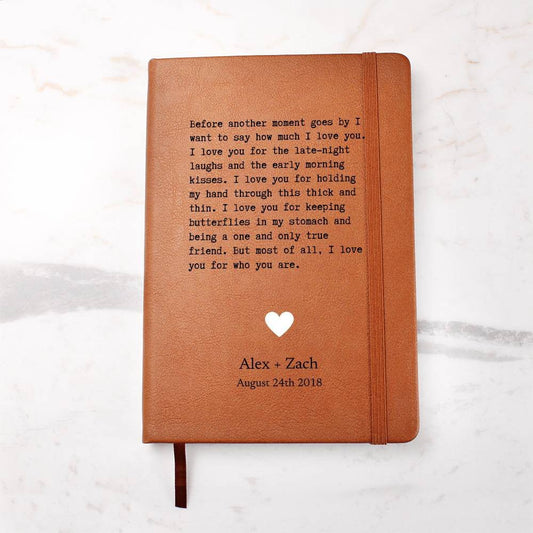 Before another moment goes by I
want to say how much I love you.
I love you for the late-night
laughs and the early morning
kisses. I love you for holding
my hand through this thick and
thin. I love you for keeping
butterflies in my stomach and
being a one and only true
friend. But most of all, I love
you for who you are.
Alex + Zach
August 24th 2018